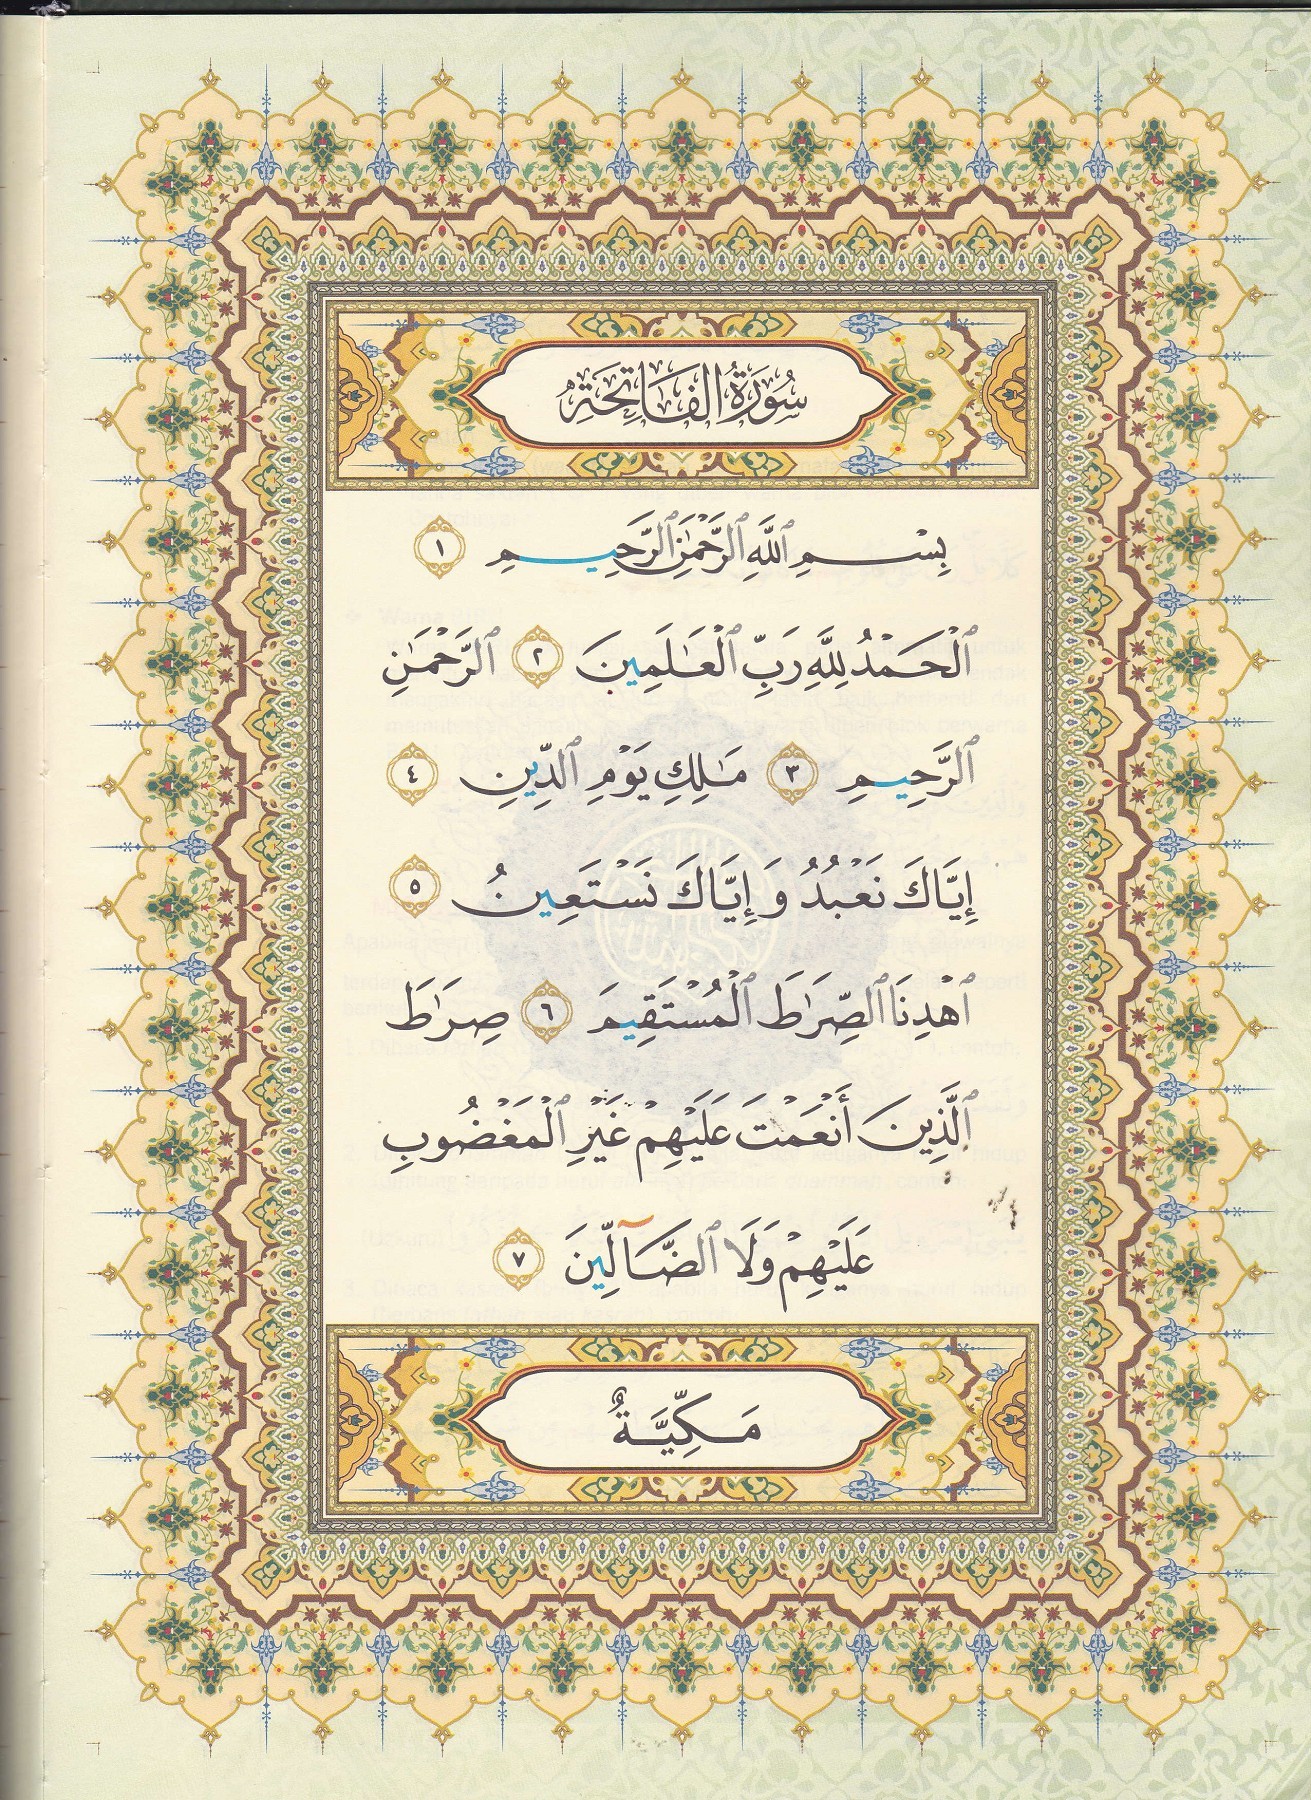 سُورَةُ الْفَاتِحَةِ
بِسْمِ ٱللَّهِ ٱلرَّحْمَٰنِ ٱلرَّحِيمِ ١
ٱلْحَمْدُ لِلَّهِ رَبِّ ٱلْعَٰلَمِينَ ٢ ٱلرَّحْمَٰنِ
ٱلرَّحِيمِ ٣ مَٰلِكِ يَوْمِ ٱلدِّينِ ٤
إِيَّاكَ نَعْبُدُ وَإِيَّاكَ نَسْتَعِينُ ٥
ٱهْدِنَا ٱلصِّرَٰطَ ٱلْمُسْتَقِيمَ ٦ صِرَٰطَ
ٱلَّذِينَ أَنْعَمْتَ عَلَيْهِمْ غَيْرِ ٱلْمَغْضُوبِ
عَلَيْهِمْ وَلَا ٱلضَّآلِّينَ ٧
مَكِّيَّةٌ